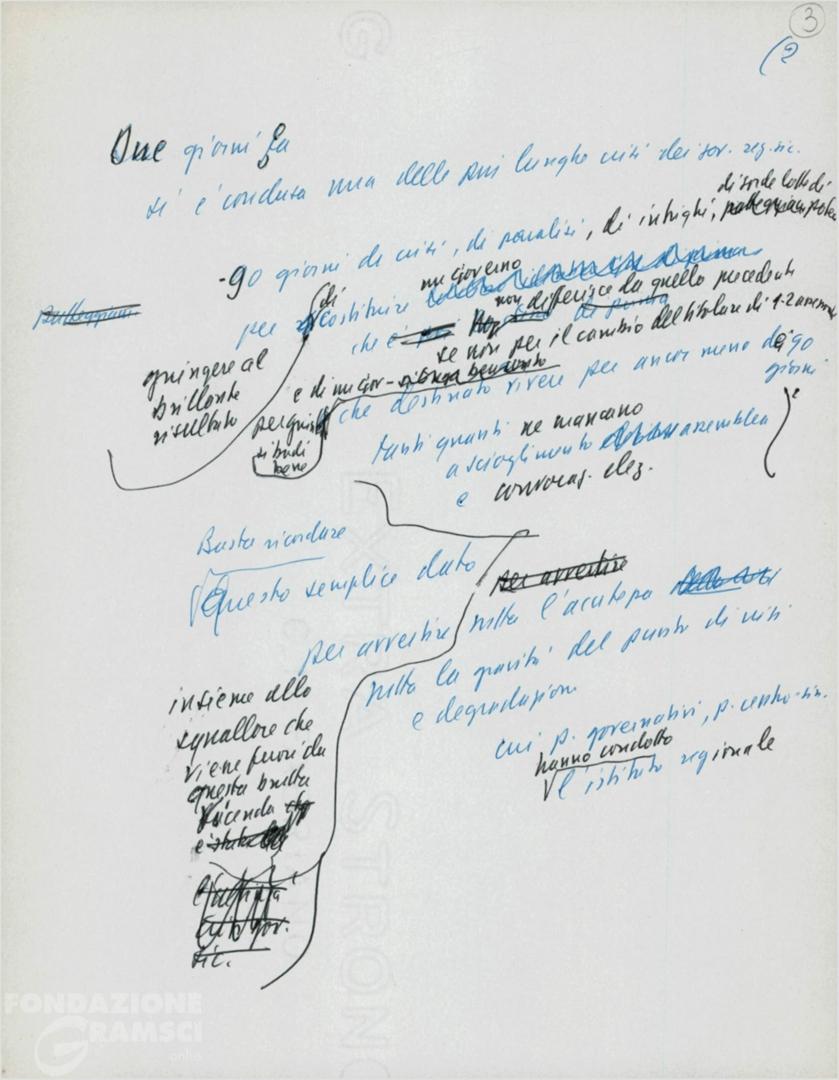 3
(2
Due giorni fa
si è conclusa una delle più lunghe crisi dei gov. reg. sic.
di sorde lotte di
-90 giorni di crisi, di paralisi, di intrighi,
un governo
per costituire
di
non differisce da quello precedente
che è
se non per il cambio del titolare di 1-2 assess.
giungere al
brillante
risultato
e di un gov-
per giunta
si badi
bene
che destinato vivere per ancor meno dei 90
giorni
tanti quanti ne mancano
a scioglimento assemblea
e convocaz. elez.
Basta ricordare
Questo semplice dato
per avvertire
per avvertire tutta l'acutezza
tutta la gravità del punto di crisi
e degradazione
insieme allo
squallore che
viene fuori da
questa brutta
vicenda
cui p. governativi, p. centro-sin.
hanno condotto
l'istituto regionale
sic.
FONDAZIONE
GRAMSCI
onlus
EXTRA STRONG